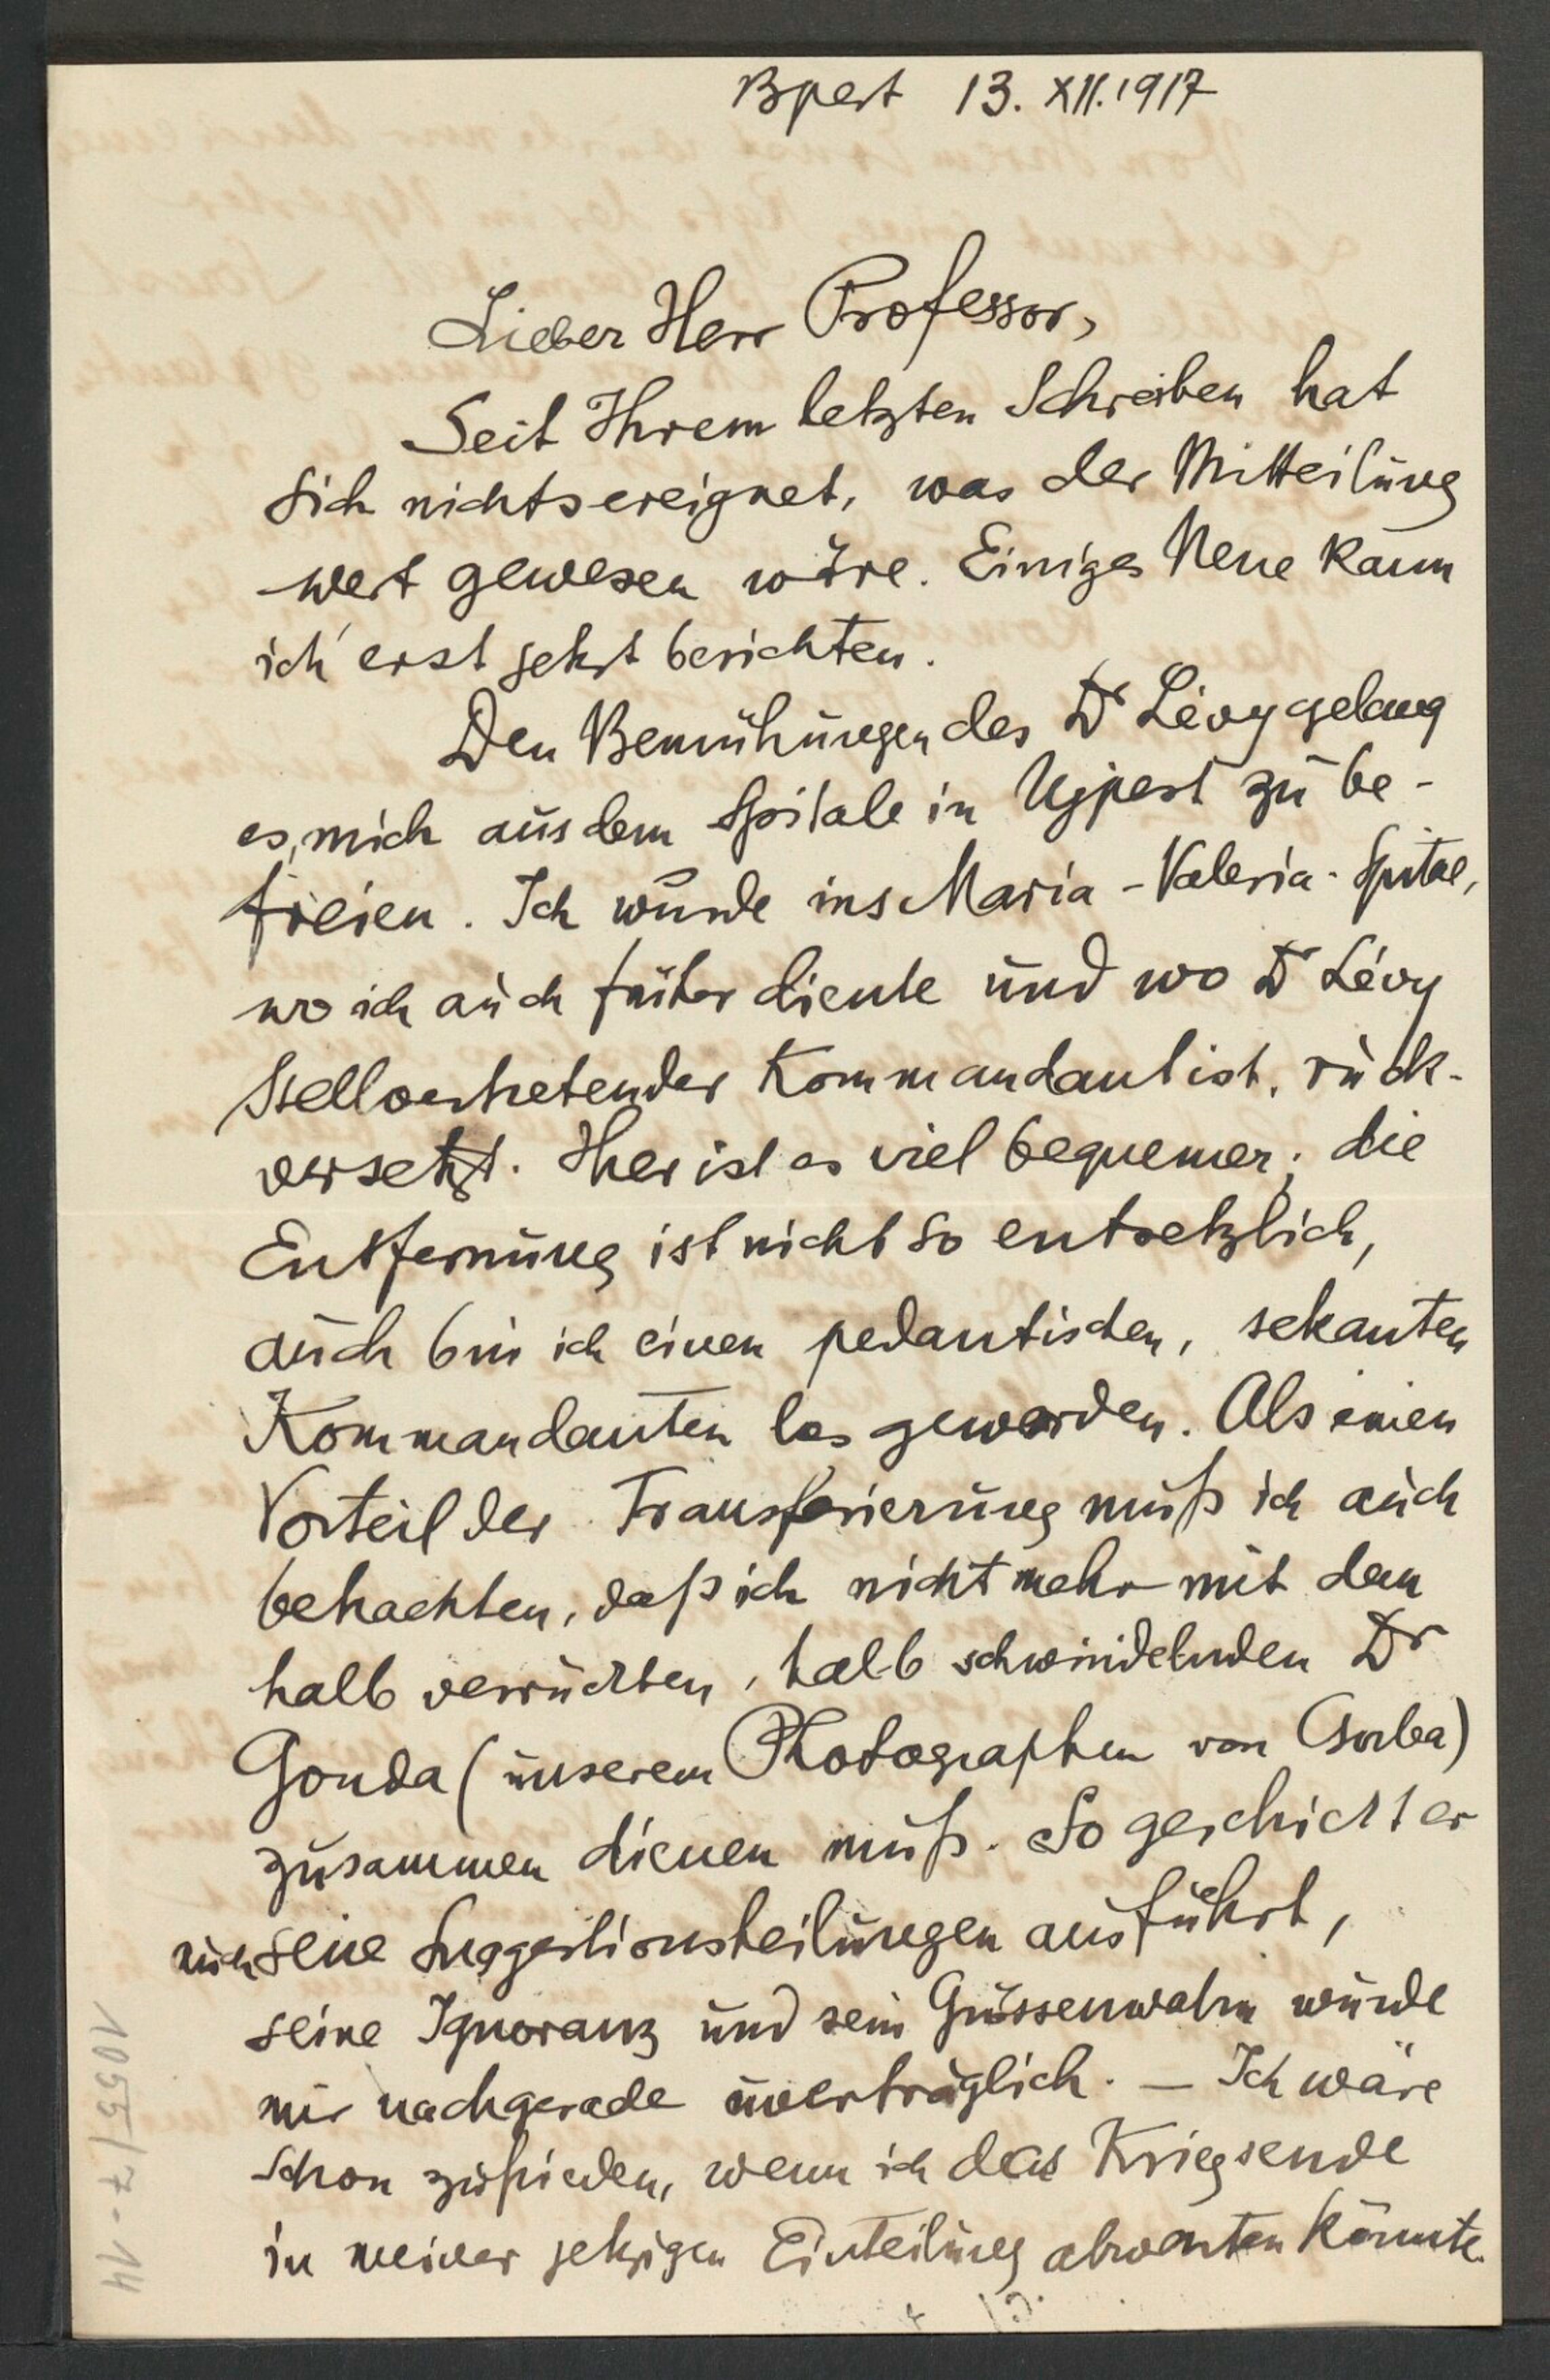 Bpest 13. XII. 1917
Lieber Herr Professor,
Seit Ihrem letzten Schreiben hat
sich nichts ereignet, was der Mitteilung
wert gewesen wäre. Einiges Neue kann
ich erst jetzt berichten.
Den Bemühungen des Dr Lévy gelang
es, mich aus dem Spitale in Ujpest zu be-
freien. Ich wurde ins Maria-Valeria-Spital,
wo ich auch früher diente und wo Dr Lévy
stellvertretender Kommandant ist, rück-
versetzt. Hier ist es viel bequemer; die
Entfernung ist nicht so entsetzlich,
auch bin ich einen pedantischen, sekanten
Kommandanten los geworden. Als einen
Vorteil der Transferierung muß ich auch
betrachten, daß ich nicht mehr mit dem
halb verrückten, halb schwindelnden Dr
Gonda (unserem Photographen von Csorba)
zusammen dienen muß. So geschickt er
auch seine Suggestionsheilungen ausführt,
seine Ignoranz und sein Grössenwahn wurde
mir nachgerade unerträglich. – Ich wäre
schon zufrieden, wenn ich das Kriegsende
in meiner jetzigen Einteilung abwarten könnte.
1055/7-14